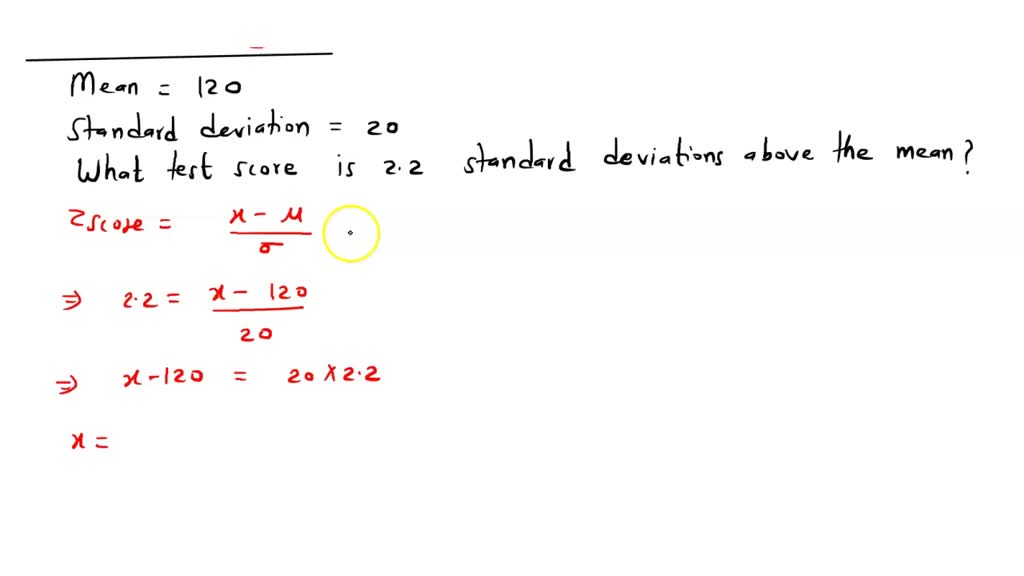 Mean = 120
Standard deviation = 20
What test score is 2.2 standard deviations above the mean?
Zscore = x - μ / σ
⇒ 2.2 = x - 120 / 20
⇒ x - 120 = 20 × 2.2
x =